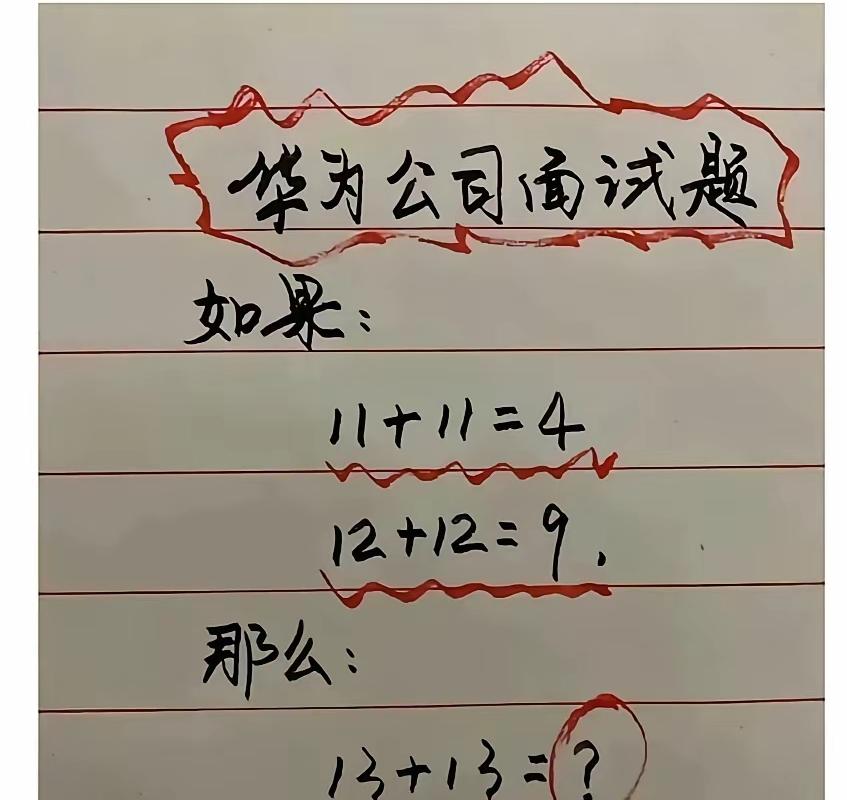 华为公司面试题
如果：
11+11=4
12+12=9.
那么：
13+13=?